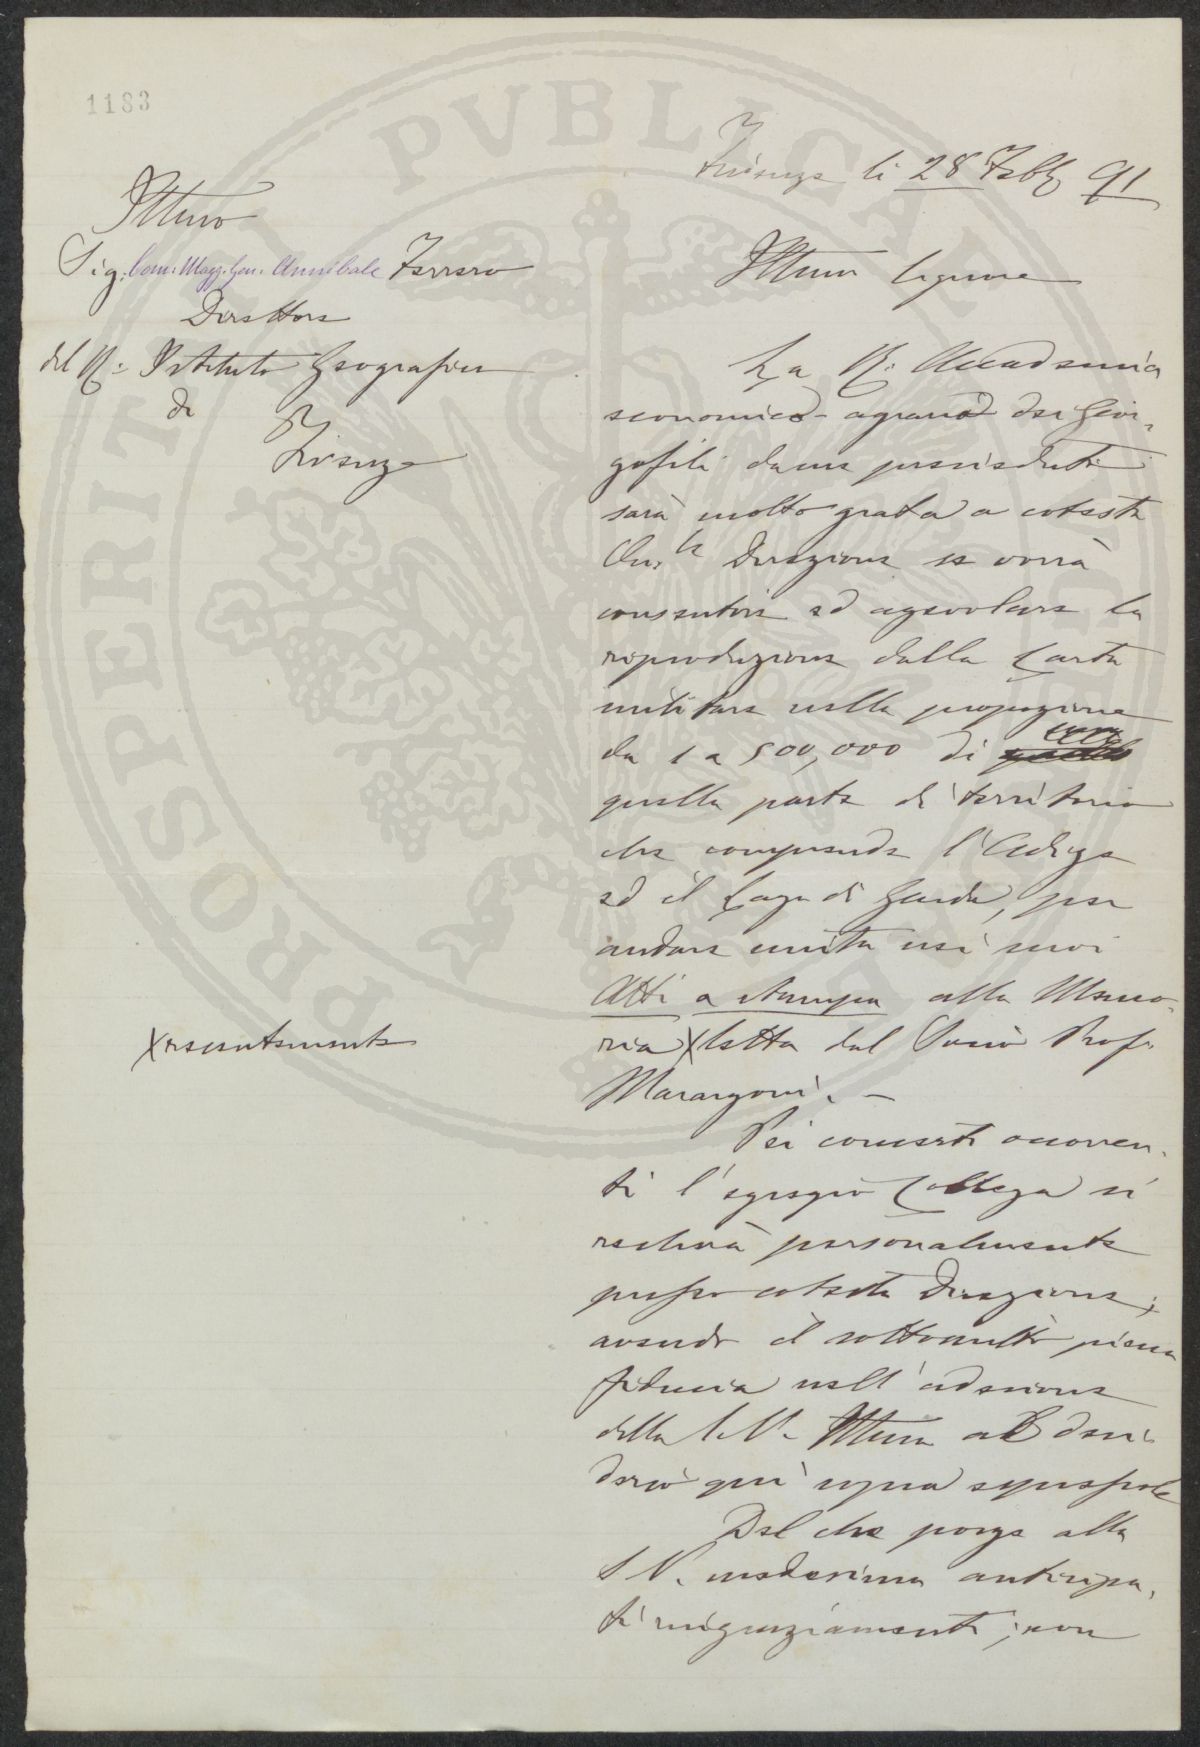 1183
Firenze li 28 Febb. 91
Illmo
Sig. Com: Magg. Gen. Annibale Ferrero
Direttore
del R. Istituto Geografico
di
Firenze
Illmo Signore
La R. Accademia
economico-agraria dei Geor-
gofili da me presieduta
sarà molto grata a cotesta
On.le Direzione se vorrà
consentire ed agevolare la
riproduzione della Carta
militare nella proporzione
da 1 a 500,000 di
quella parte di territorio
che comprende l'Adige
ed il Lago di Garda, per
andare unita nei suoi
Atti a stampa alla Memo-
ria X letta dal Socio Prof.
Marangoni. —
X recentemente
Pei concerti occorren-
ti l'egregio Collega si
recherà personalmente
presso cotesta Direzione;
avendo il sottoscritto piena
fiducia nell'adesione
della S. V. Illma al desi-
derio qui sopra espresso
Del che porge alla
S V. medesima anticipa-
ti ringraziamenti; con
PROSPERITATI PVBLICAE